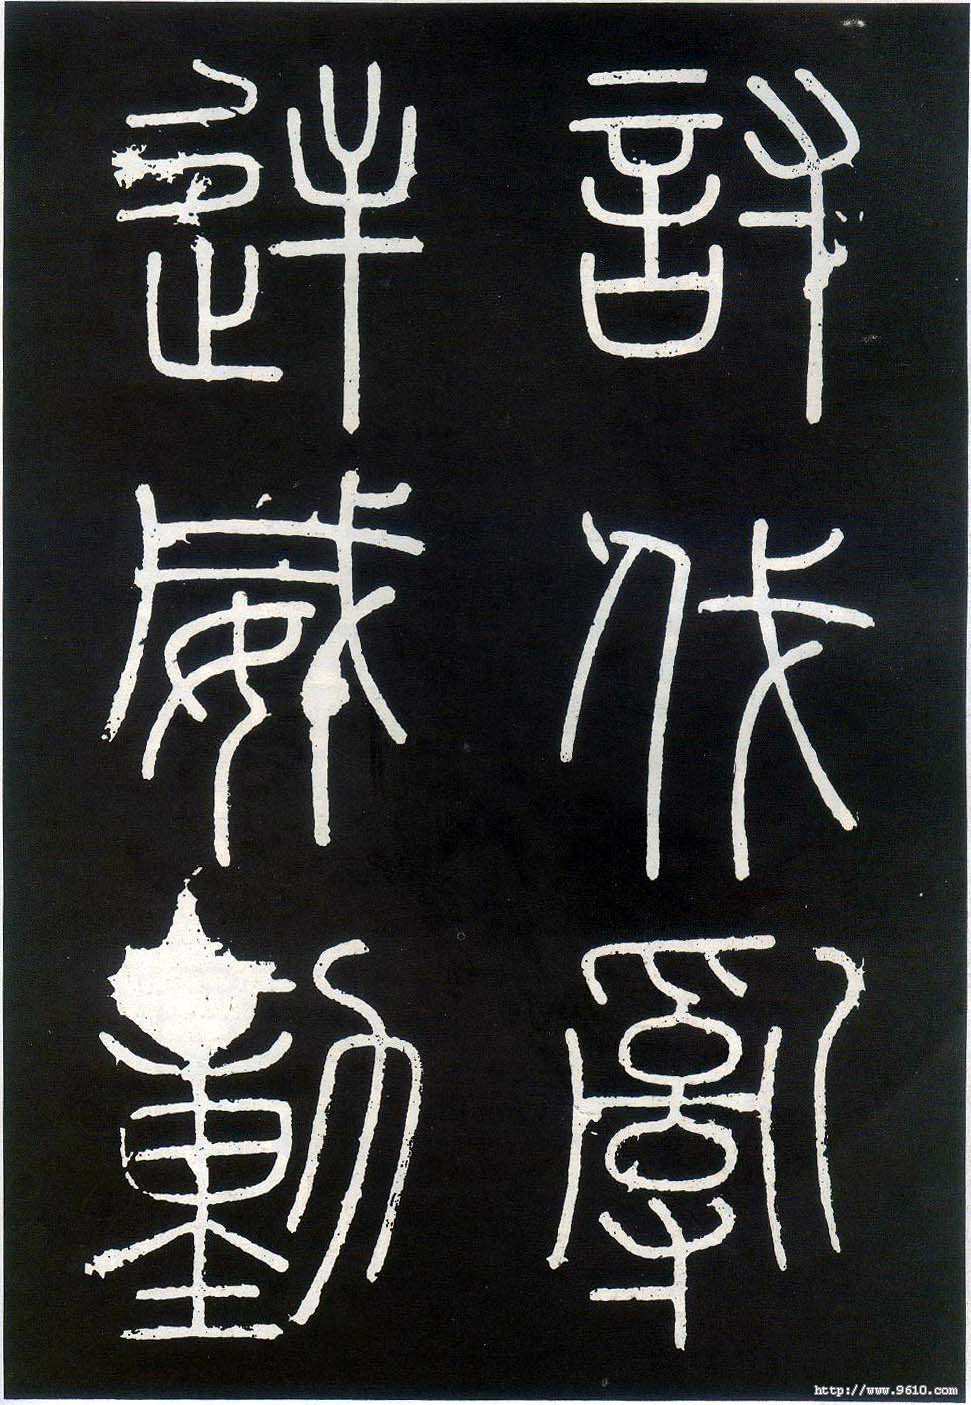 討伐亂
逆威動
http://www.9610.com